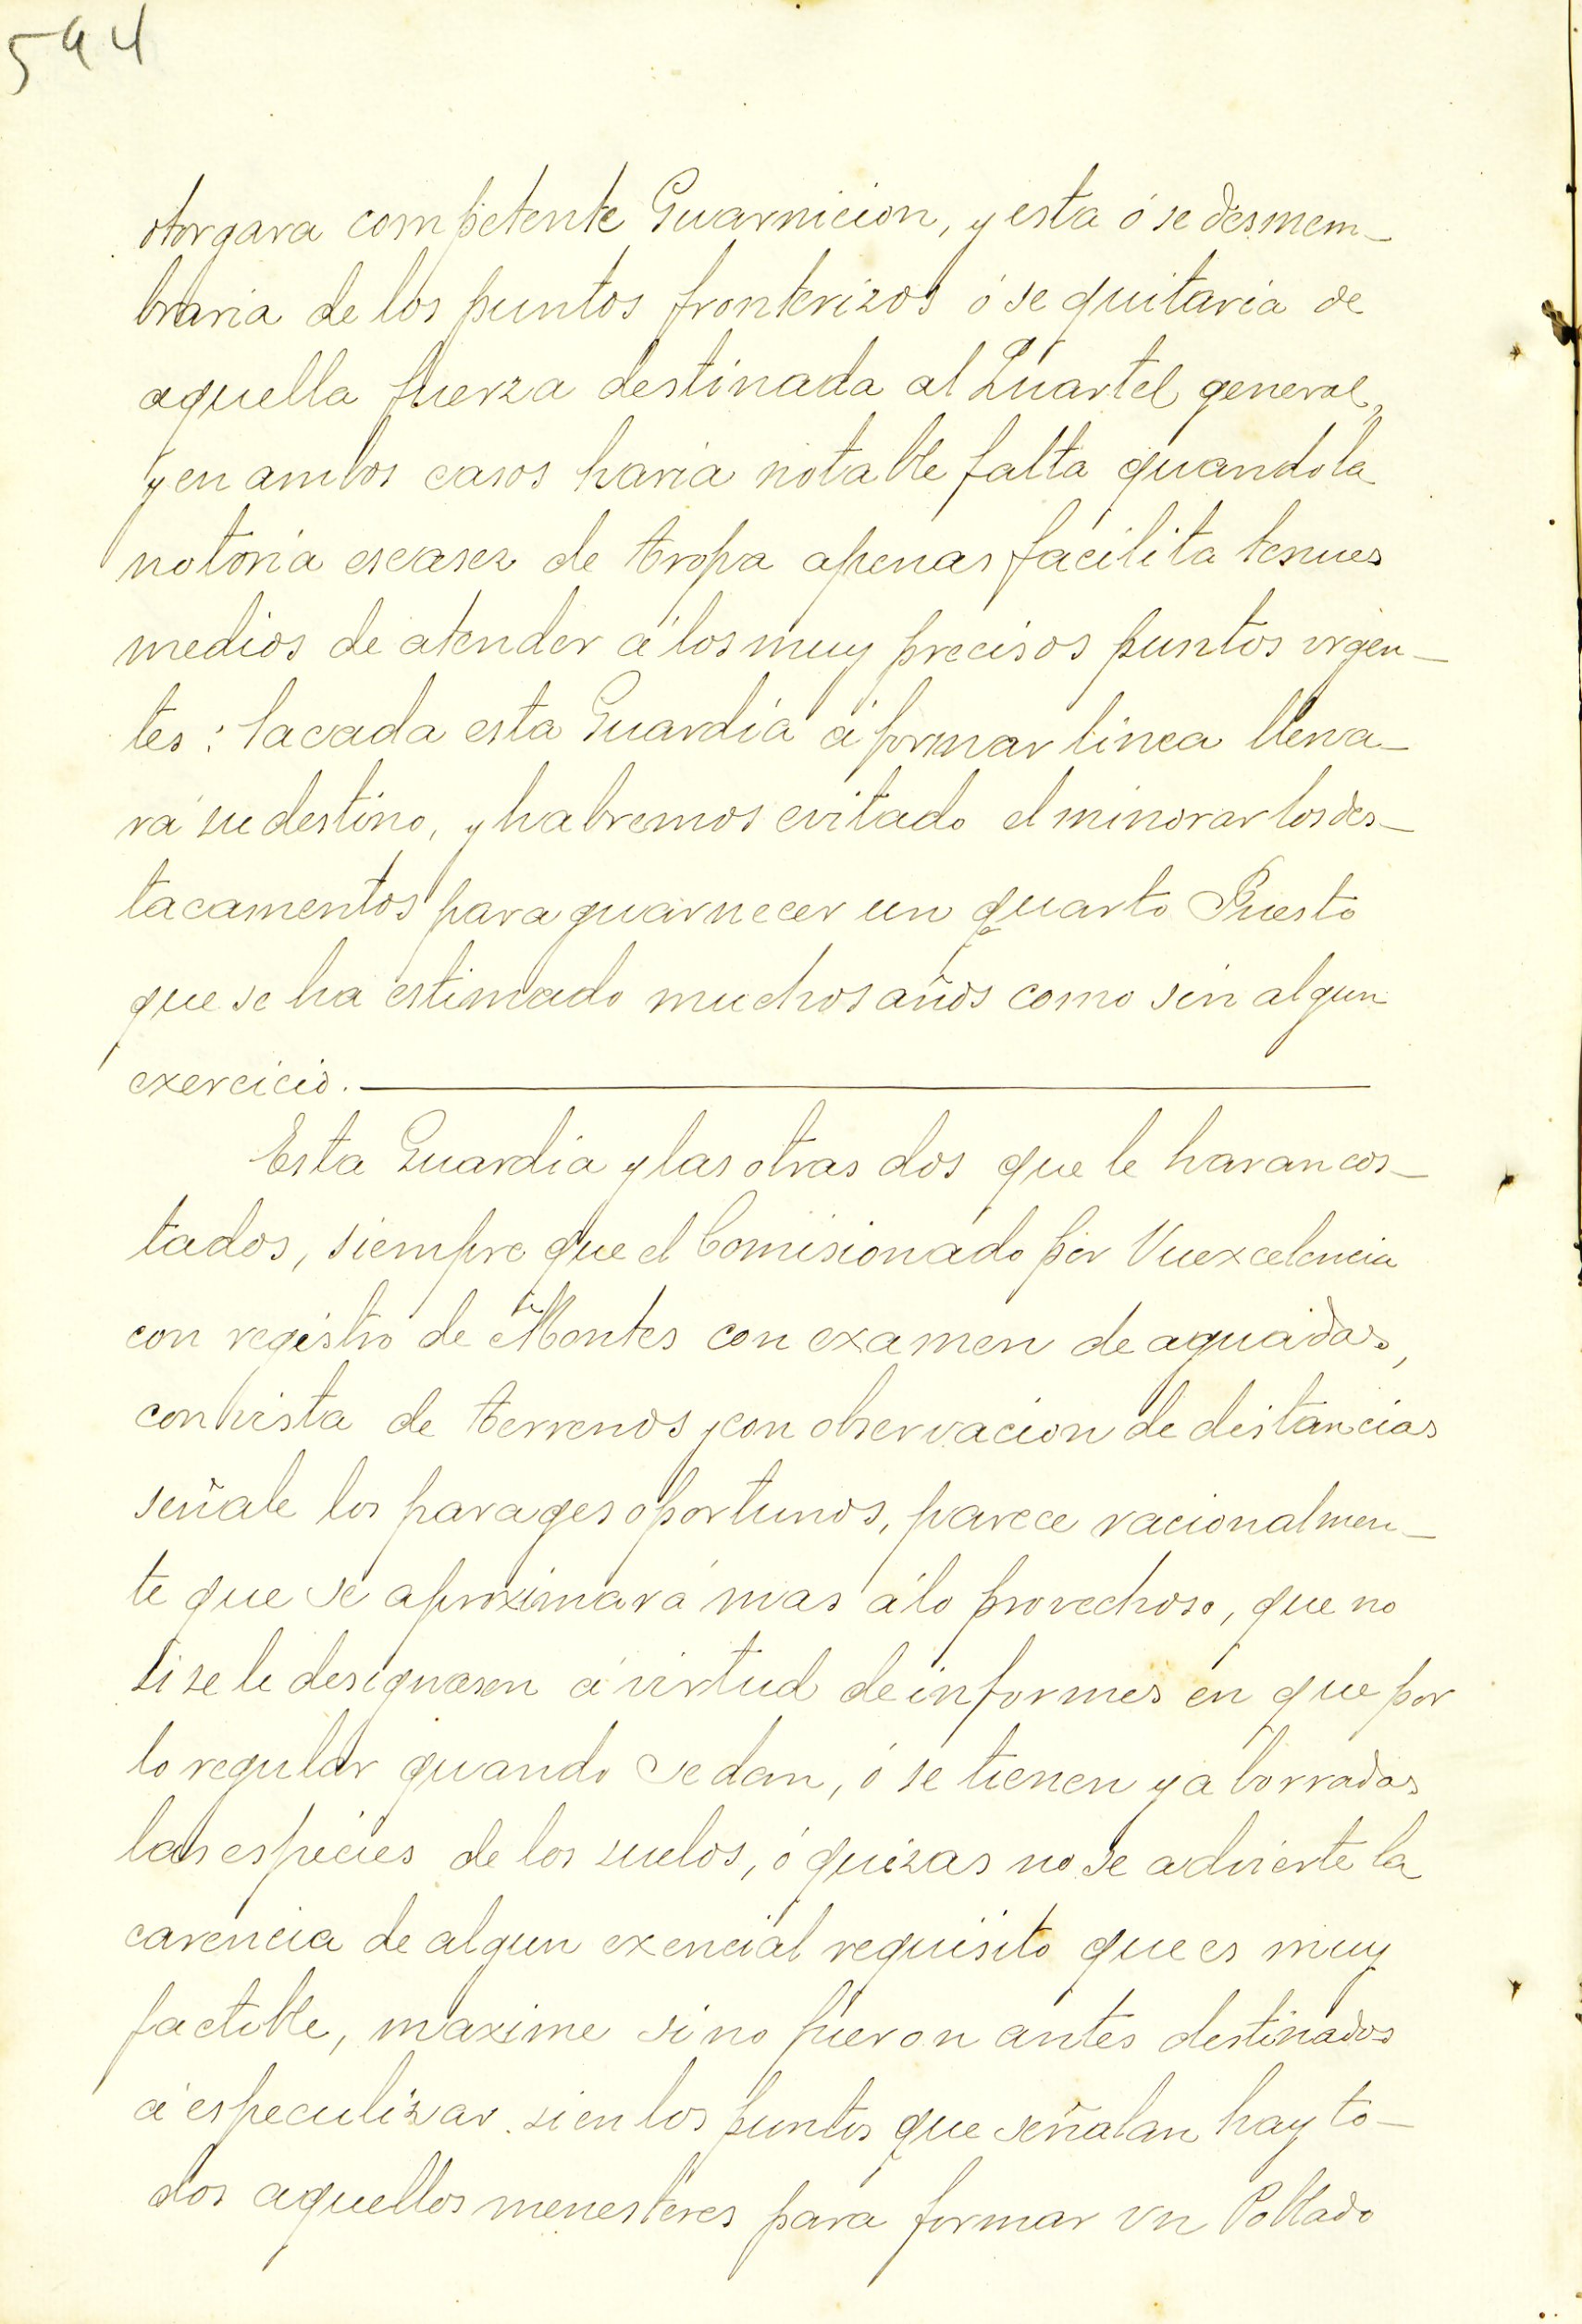 594
otorgara competente Guarnicion, y esta ó se desmem-
braria de los puntos fronterizos ó se quitaria de
aquella fuerza destinada al Quartel general,
y en ambos casos haria notable falta quando la
notoria escasez de tropa apenas facilita tenues
medios de atender á los muy precisos puntos urgen-
tes: sacada esta Guardia á formar linea llena-
rá su destino, y habremos evitado el minorar los des-
tacamentos para guarnecer un quarto Puesto
que se ha estimado muchos años como sin algun
exercicio.
Esta Guardia y las otras dos que le haran cos-
tados, siempre que el Comisionado por Vuexcelencia
con registro de Montes con examen de aguadas,
con vista de terrenos y con observacion de distancias
señale los parages oportunos, parece racionalmen-
te que se aproximará mas á lo provechoso, que no
si se le designasen á virtud de informes en que por
lo regular quando se dan, ó se tienen ya borradas
las especies de los suelos, ó quizas no se advierte la
carencia de algun exencial requisito que es muy
factible, maxime si no fueron antes destinados
á especulizar si en los puntos que señalan hay to-
dos aquellos menesteres para formar vn Poblado